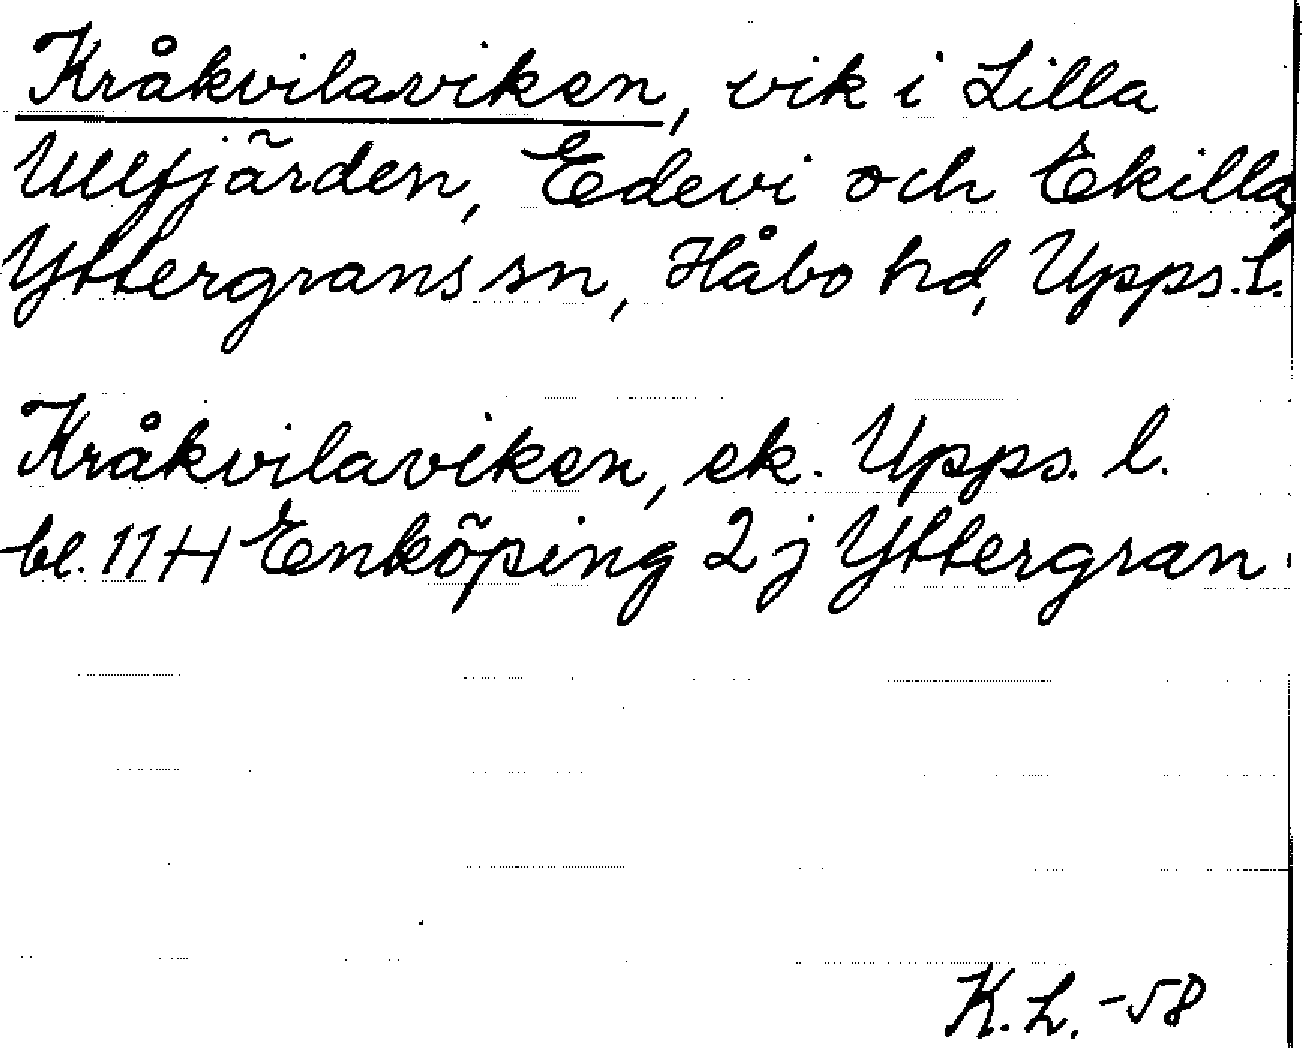 Kråkvilaviken, vik i Lilla
Ullfjärden, Edevi och Ekilla,
Yttergrans sn, Håbo hd, Upps. l.
Kråkvilaviken, ek. Upps. l.
bl. 11 H Enköping 2 j Yttergran
K. L. -58